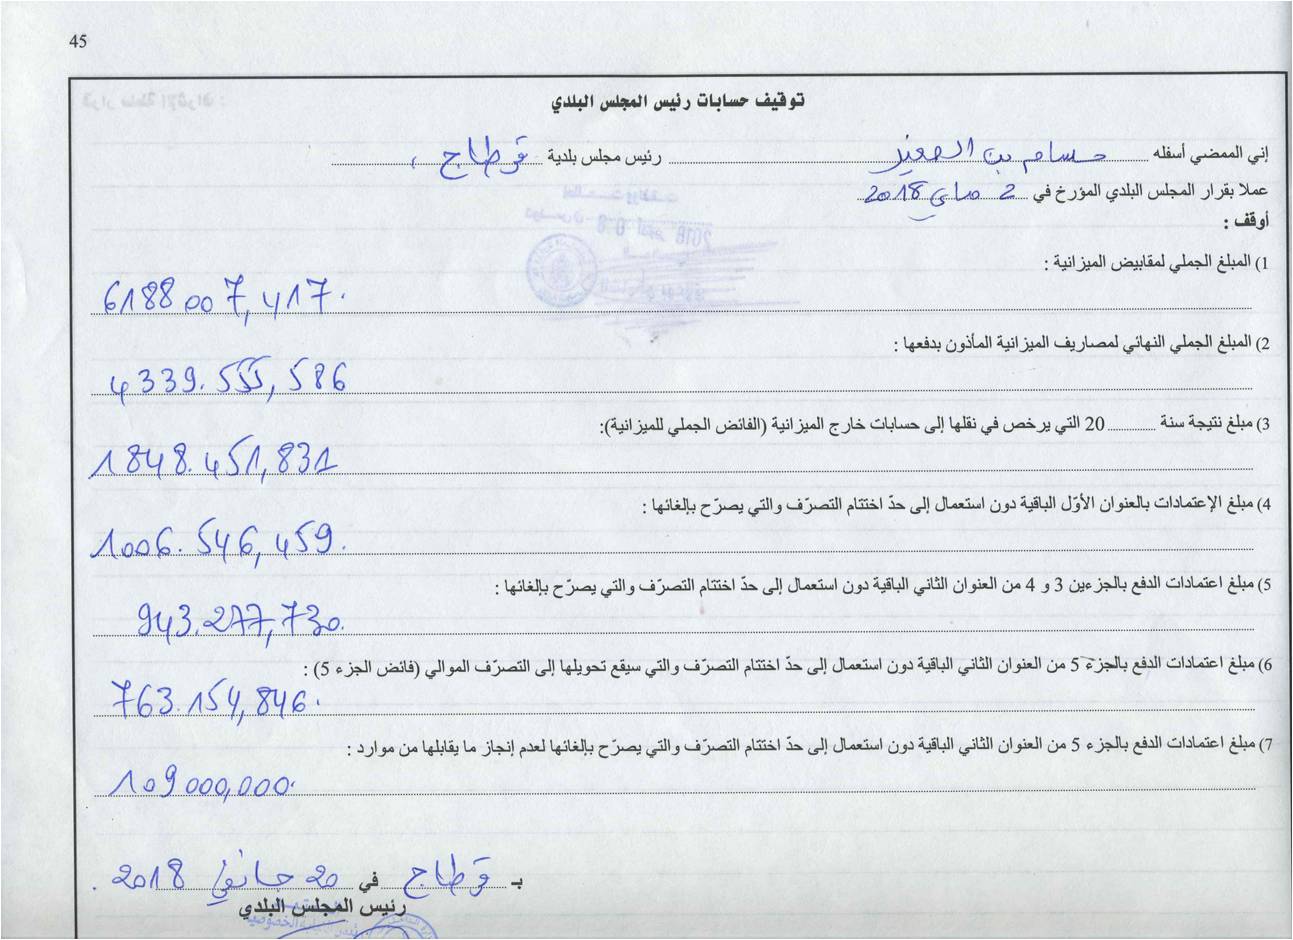 45
توقيف حسابات رئيس المجلس البلدي
إني الممضي أسفله حسام بن الصغير رئيس مجلس بلدية قرطاج ،
عملا بقرار المجلس البلدي المؤرخ في 2 ماي 2018
أوقف :
1) المبلغ الجملي لمقابيض الميزانية :
6188 007,417.
2) المبلغ الجملي النهائي لمصاريف الميزانية المأذون بدفعها :
4339.555,586
3) مبلغ نتيجة سنة 20 التي يرخص في نقلها إلى حسابات خارج الميزانية (الفائض الجملي للميزانية):
1848.451,831
4) مبلغ الإعتمادات بالعنوان الأوّل الباقية دون استعمال إلى حدّ اختتام التصرّف والتي يصرّح بإلغائها :
1006.546,459.
5) مبلغ اعتمادات الدفع بالجزءين 3 و 4 من العنوان الثاني الباقية دون استعمال إلى حدّ اختتام التصرّف والتي يصرّح بإلغائها :
943.277,730.
6) مبلغ اعتمادات الدفع بالجزء 5 من العنوان الثاني الباقية دون استعمال إلى حدّ اختتام التصرّف والتي سيقع تحويلها إلى التصرّف الموالي (فائض الجزء 5) :
763.154,846.
7) مبلغ اعتمادات الدفع بالجزء 5 من العنوان الثاني الباقية دون استعمال إلى حدّ اختتام التصرّف والتي يصرّح بإلغائها لعدم إنجاز ما يقابلها من موارد :
109000,000.
بـ قرطاج في 20 جانفي 2018.
رئيس المجلس البلدي